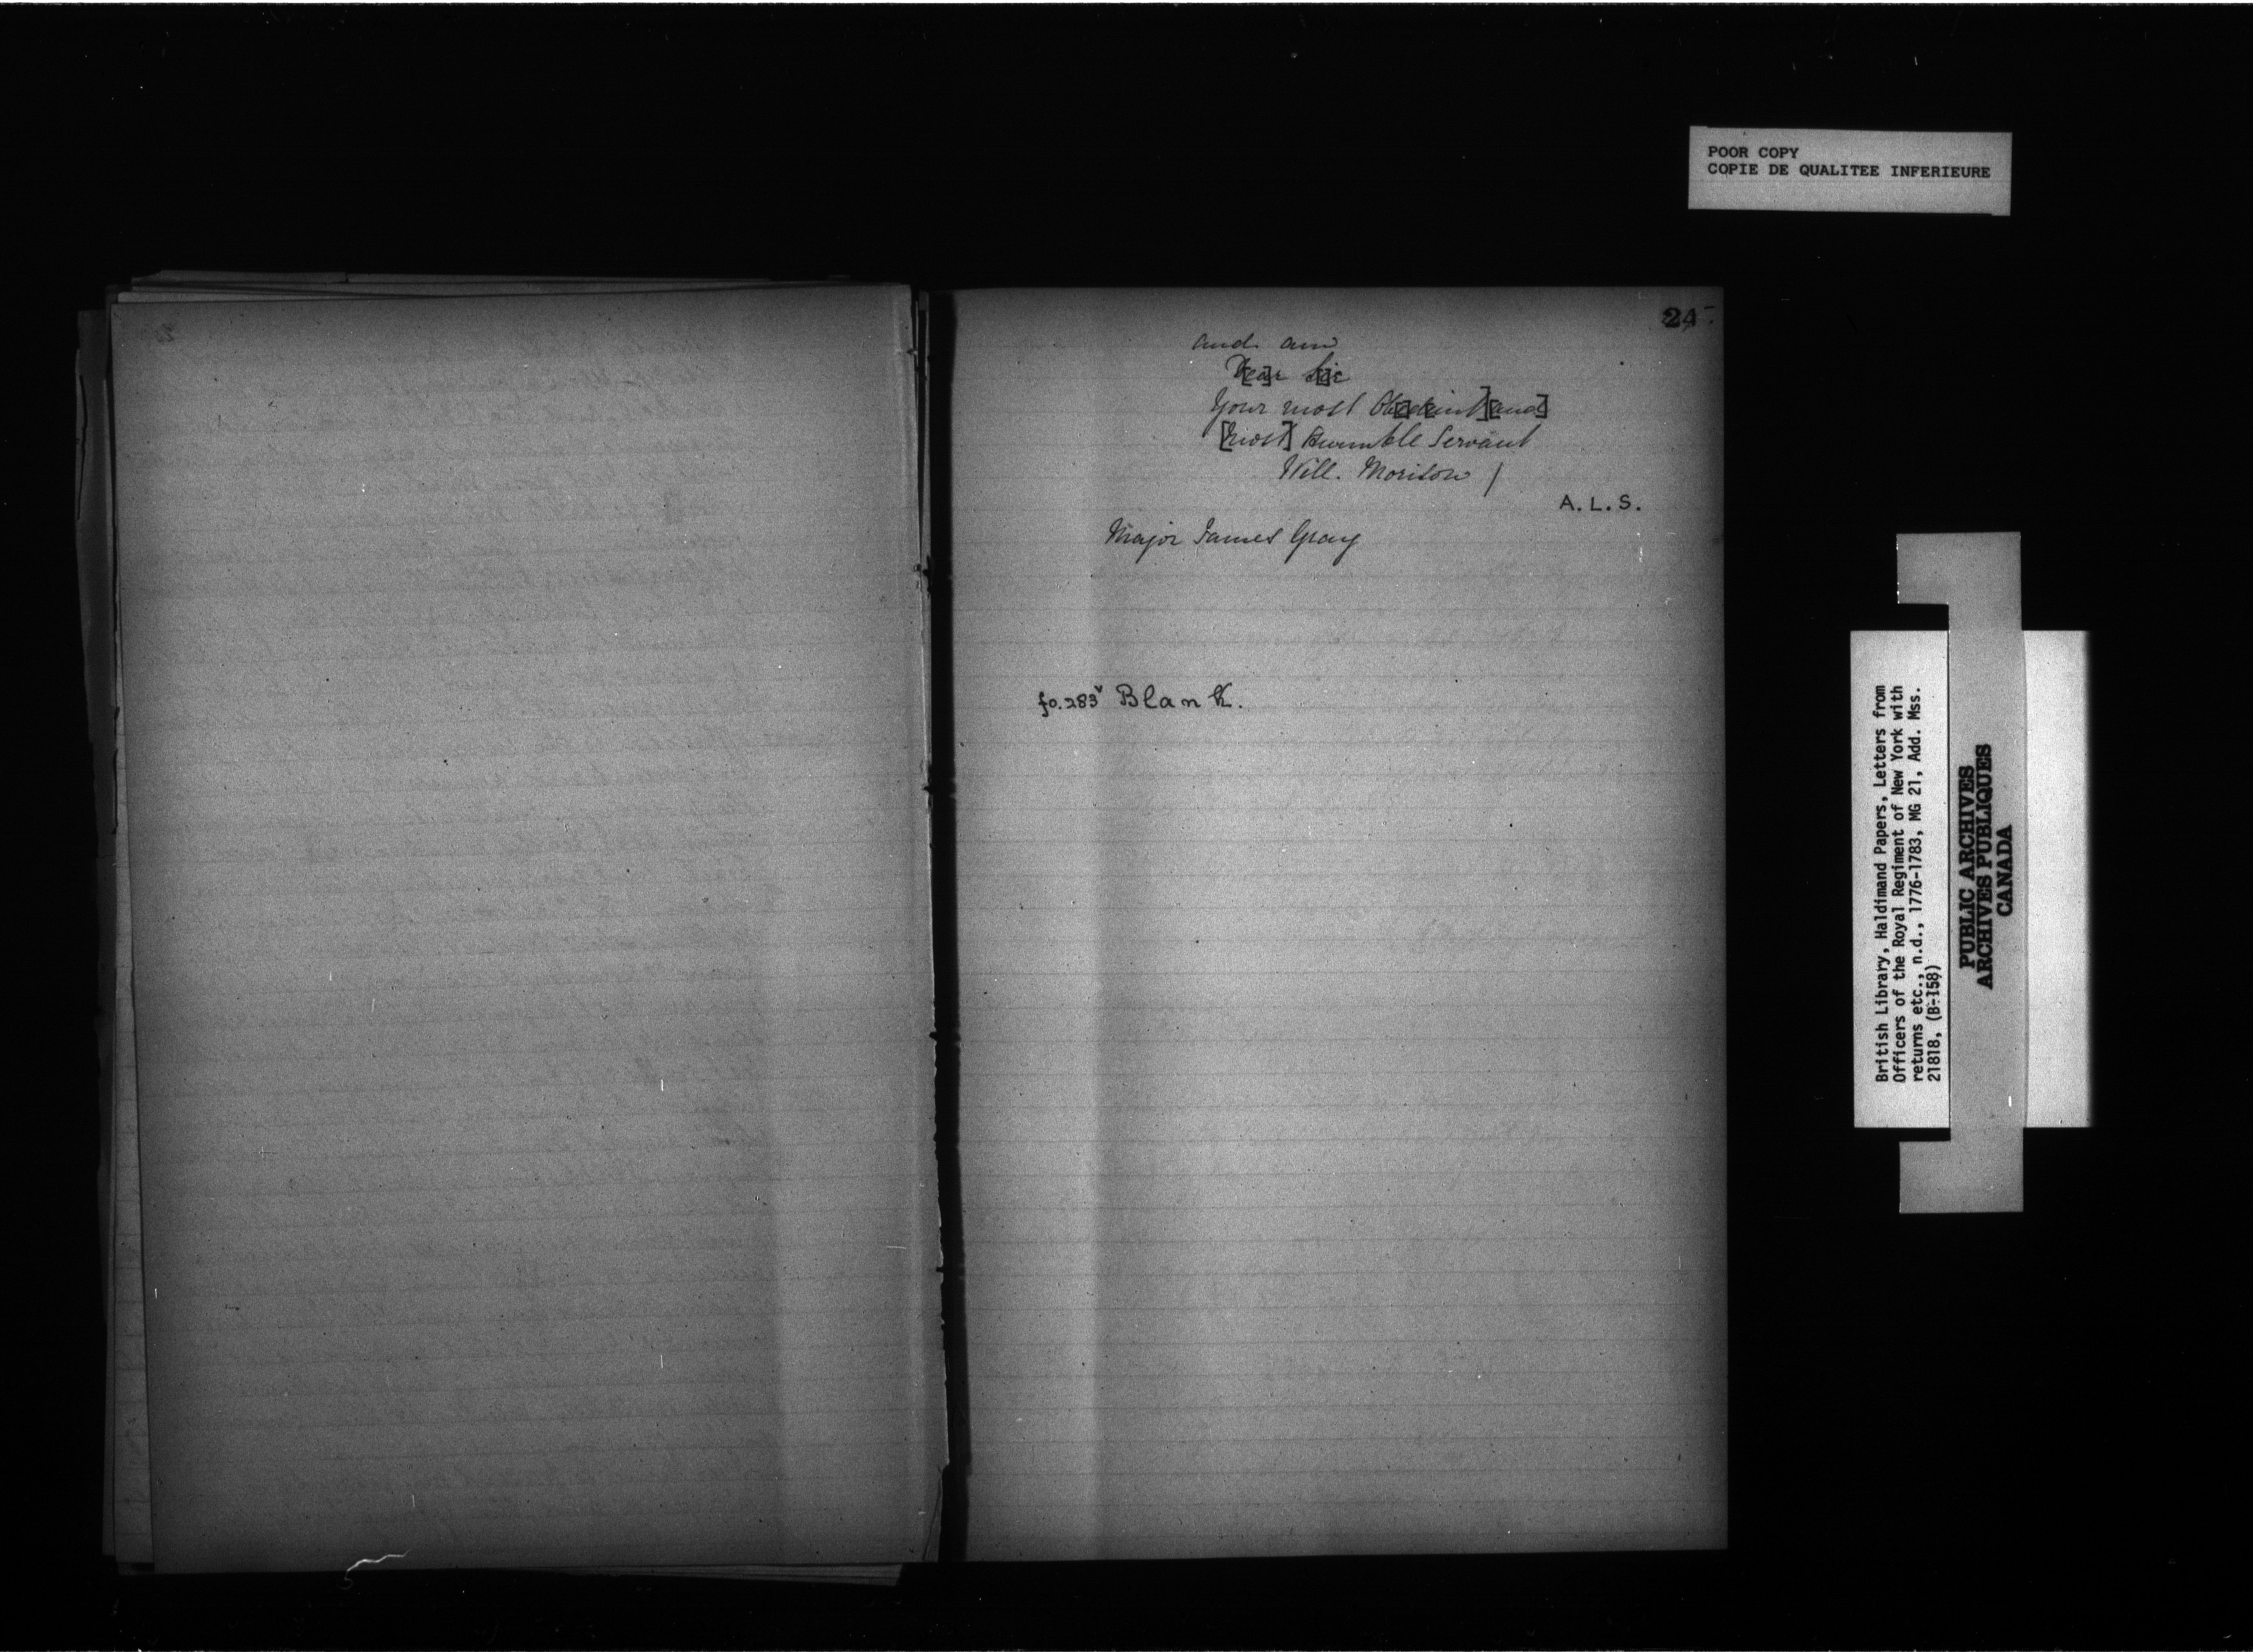 POOR COPY
COPIE DE QUALITEE INFERIEURE
24
and am
D[ea]r S[i]r
Your most Ob[e]d[ient] [and]
[most] Humble Servant
Will. Morison /
A. L. S.
Major James Gray
fo. 283v Blank.
British Library, Haldimand Papers, Letters from
Officers of the Royal Regiment of New York with
returns etc., n.d., 1776-1783, MG 21, Add. Mss.
21818, (B-158)
PUBLIC ARCHIVES
ARCHIVES PUBLIQUES
CANADA